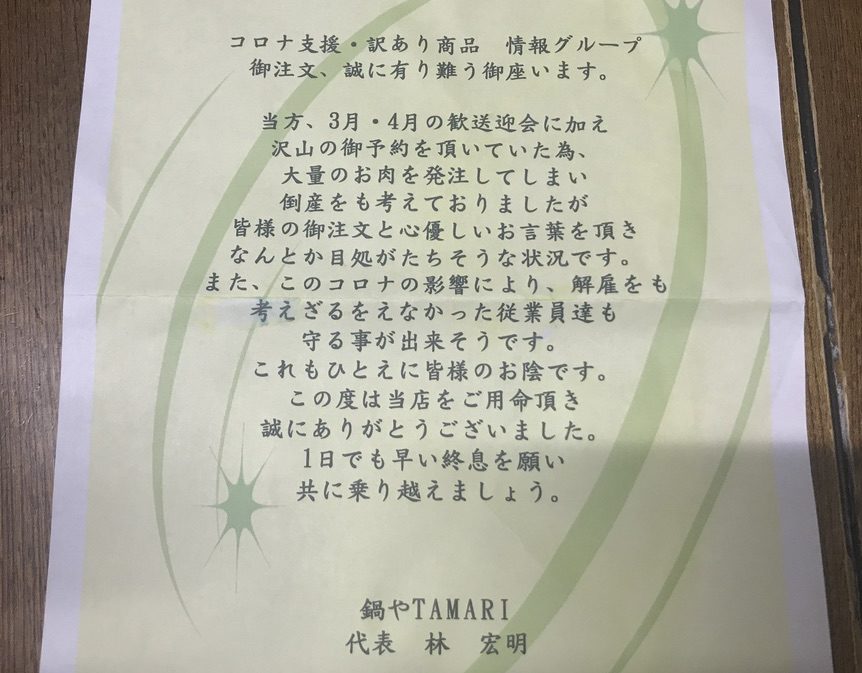 コロナ支援・訳あり商品　情報グループ
御注文、誠に有り難う御座います。
当方、3月・4月の歓送迎会に加え
沢山の御予約を頂いていた為、
大量のお肉を発注してしまい
倒産をも考えておりましたが
皆様の御注文と心優しいお言葉を頂き
なんとか目処がたちそうな状況です。
また、このコロナの影響により、解雇をも
考えざるをえなかった従業員達も
守る事が出来そうです。
これもひとえに皆様のお陰です。
この度は当店をご用命頂き
誠にありがとうございました。
1日でも早い終息を願い
共に乗り越えましょう。
鍋やTAMARI
代表　林　宏明